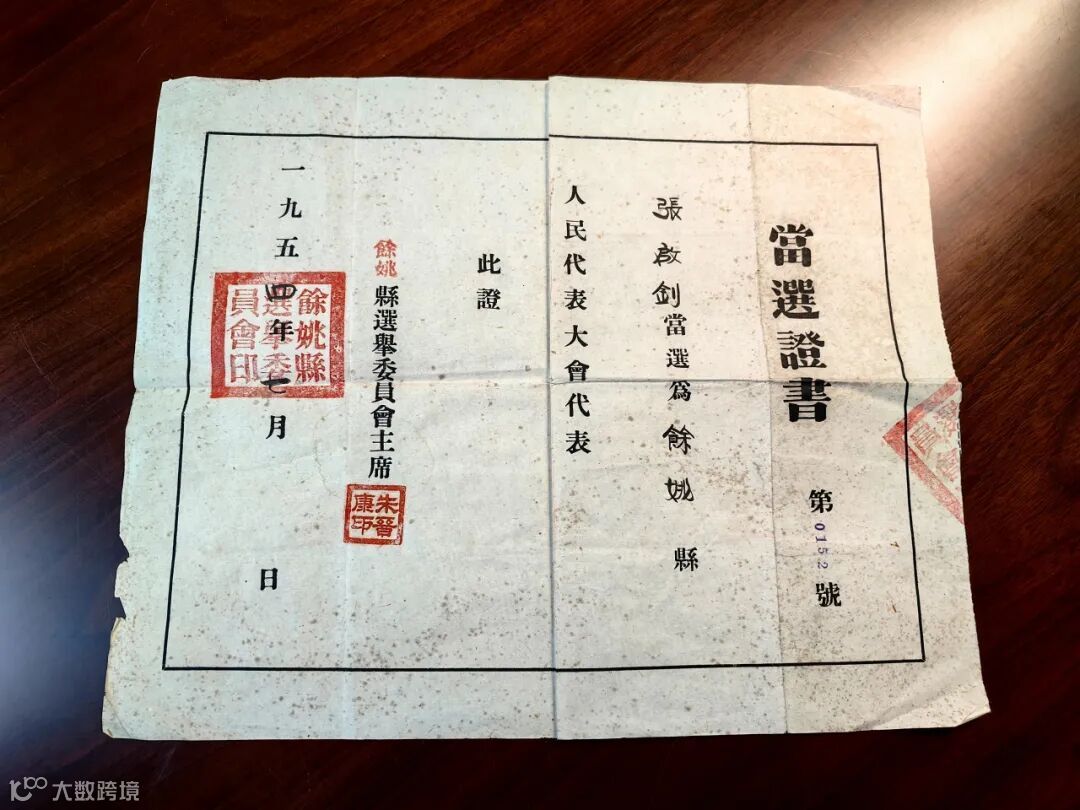 當選證書
第0152號
張啟釗當選為餘姚縣
人民代表大會代表
此證
餘姚縣選舉委員會主席
朱晉康印
一九五四年七月 日
餘姚縣選舉委員會印
大数跨境